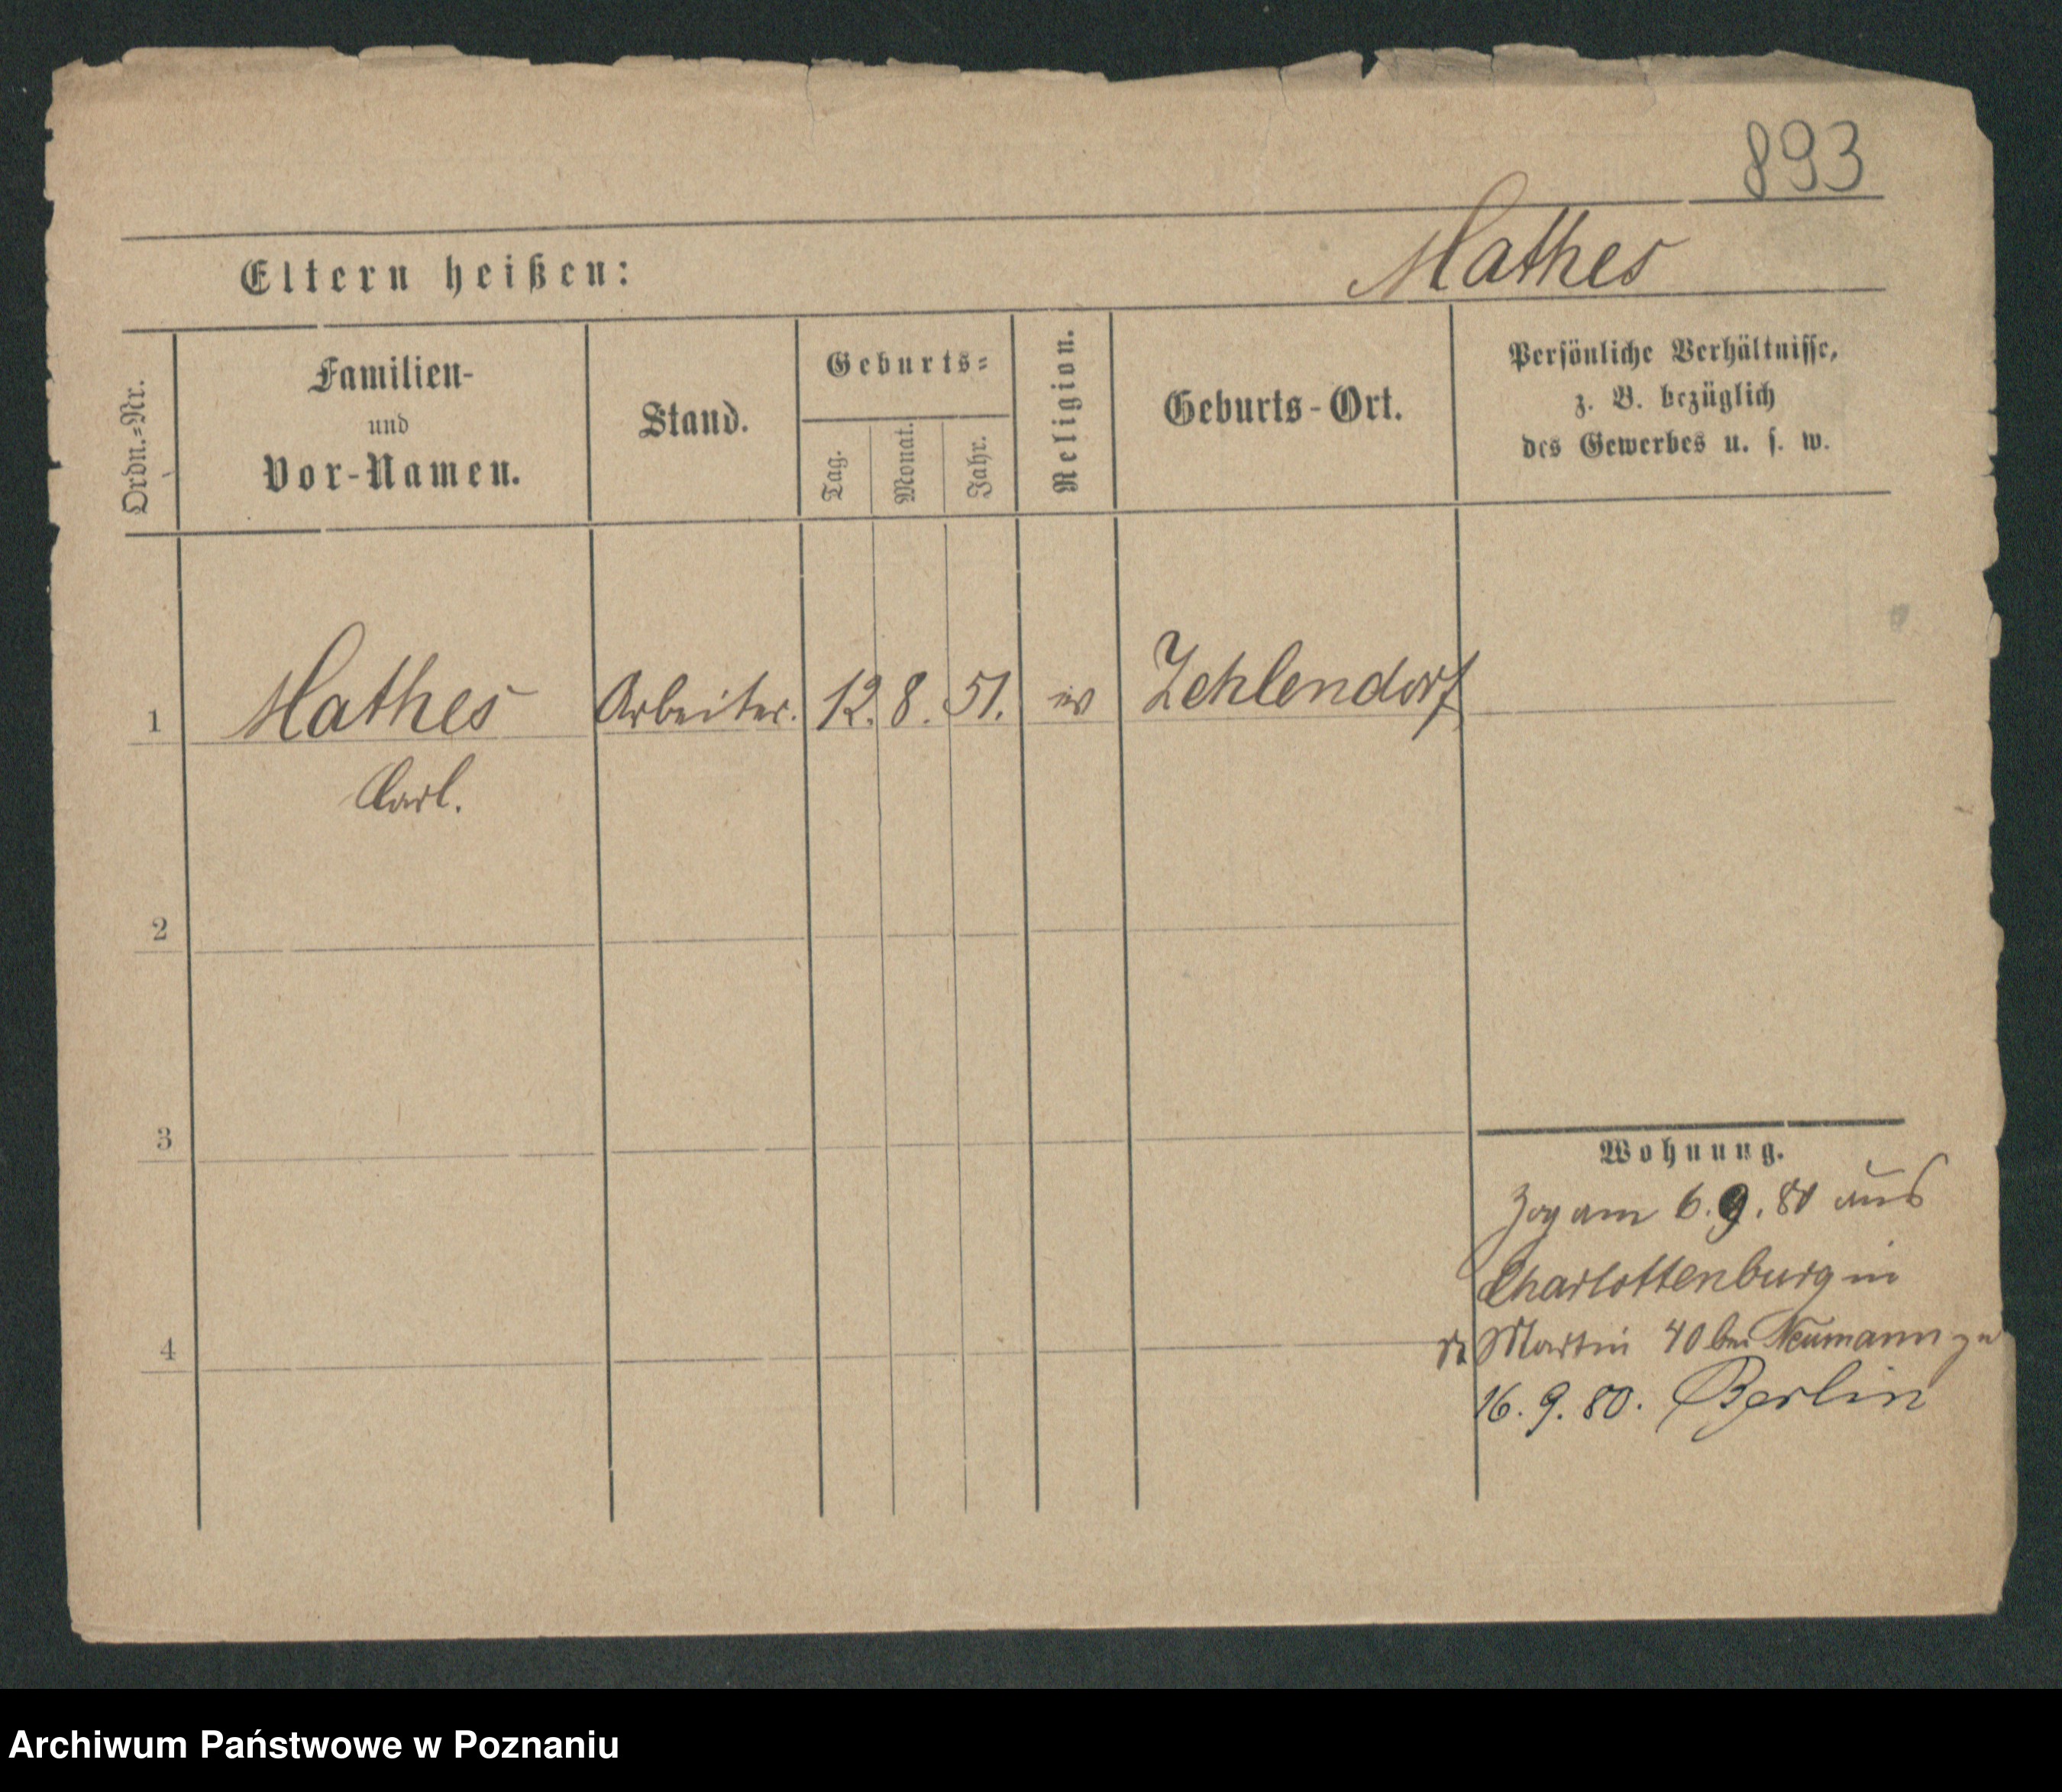 893
Mathes
Eltern heißen:
Ordn.-Nr.
Familien-
und
Vor-Namen.
Stand.
Geburts-
Tag.
Monat.
Jahr.
Religion.
Geburts-Ort.
Persönliche Verhältnisse,
z. B. bezüglich
des Gewerbes u. s. w.
1 Mathes Arbeiter. 12. 8. 51. Zehlendorf
Carl.
2
3
Wohnung.
Zog am 6. 9. 80 aus
Charlottenburg in
4
St Martin 40 bei Neumann zu
16. 9. 80. Berlin
Archiwum Państwowe w Poznaniu